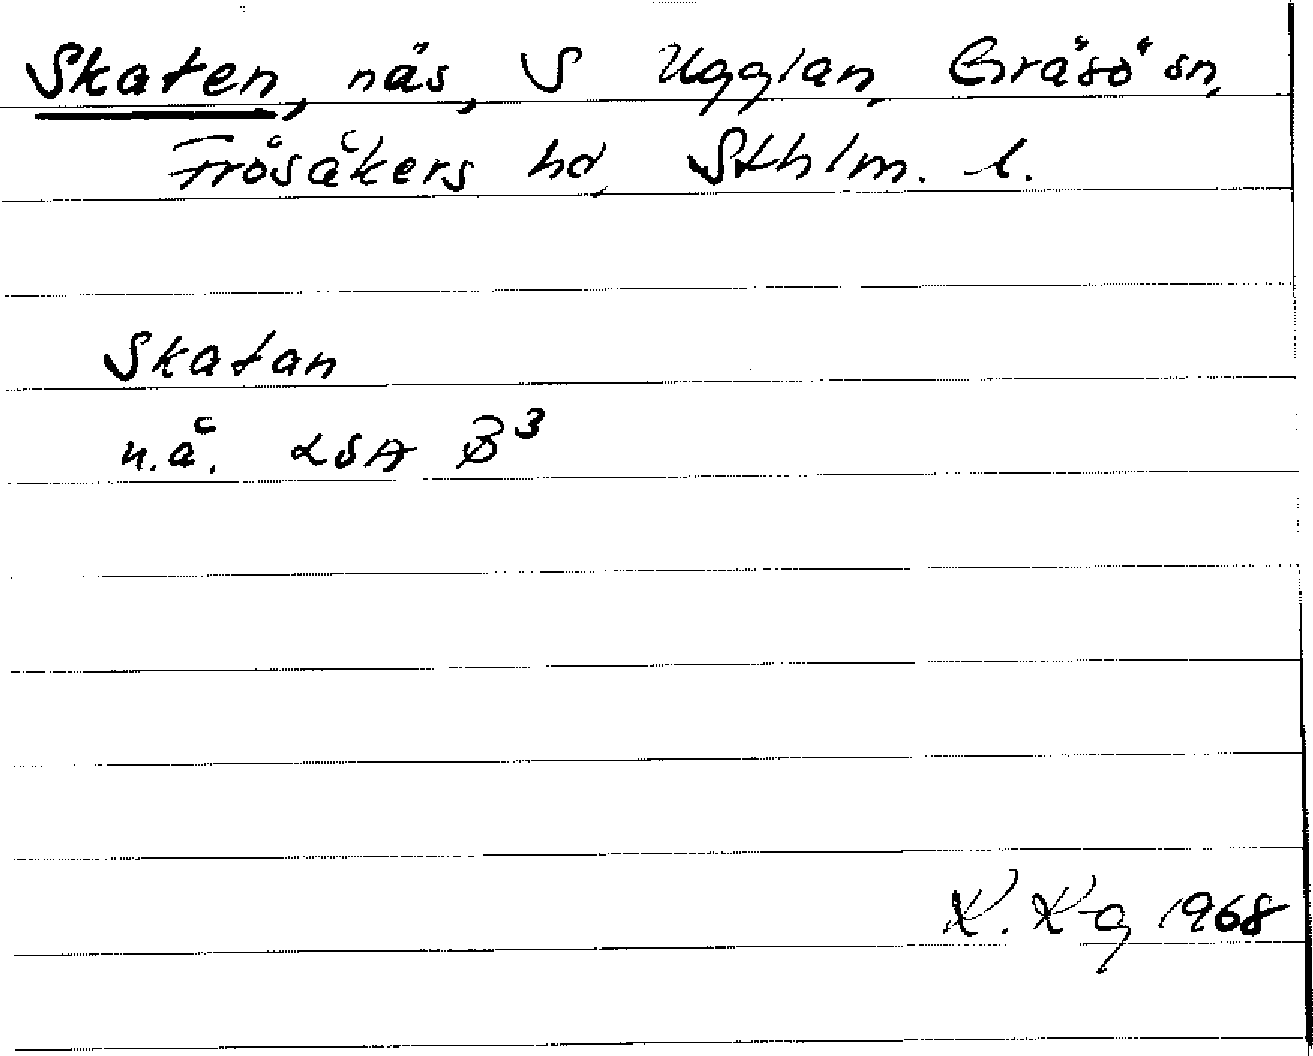 Skaten, näs, S Ugglan, Gräsö sn,
Frösåkers hd, Sthlm. l.
Skatan
n.å. LSA B3
K. K-g 1968